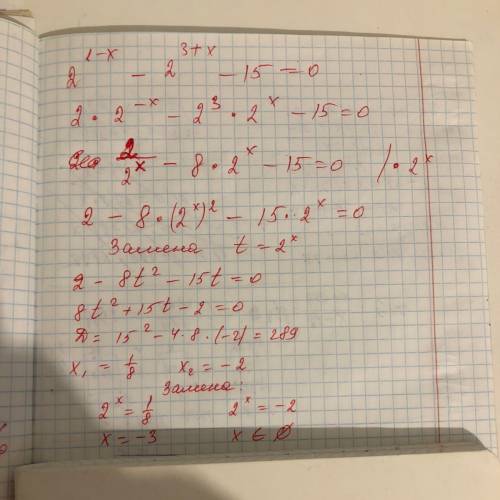 2^{1-x} - 2^{3+x} - 15 = 0
2 · 2^{-x} - 2^3 · 2^x - 15 = 0
2/2^x - 8 · 2^x - 15 = 0 / · 2^x
2 - 8 · (2^x)^2 - 15 · 2^x = 0
Замена t = 2^x
2 - 8t^2 - 15t = 0
8t^2 + 15t - 2 = 0
D = 15^2 - 4 · 8 · (-2) = 289
x_1 = 1/8 x_2 = -2
Замена:
2^x = 1/8 2^x = -2
x = -3 x ∈ ∅